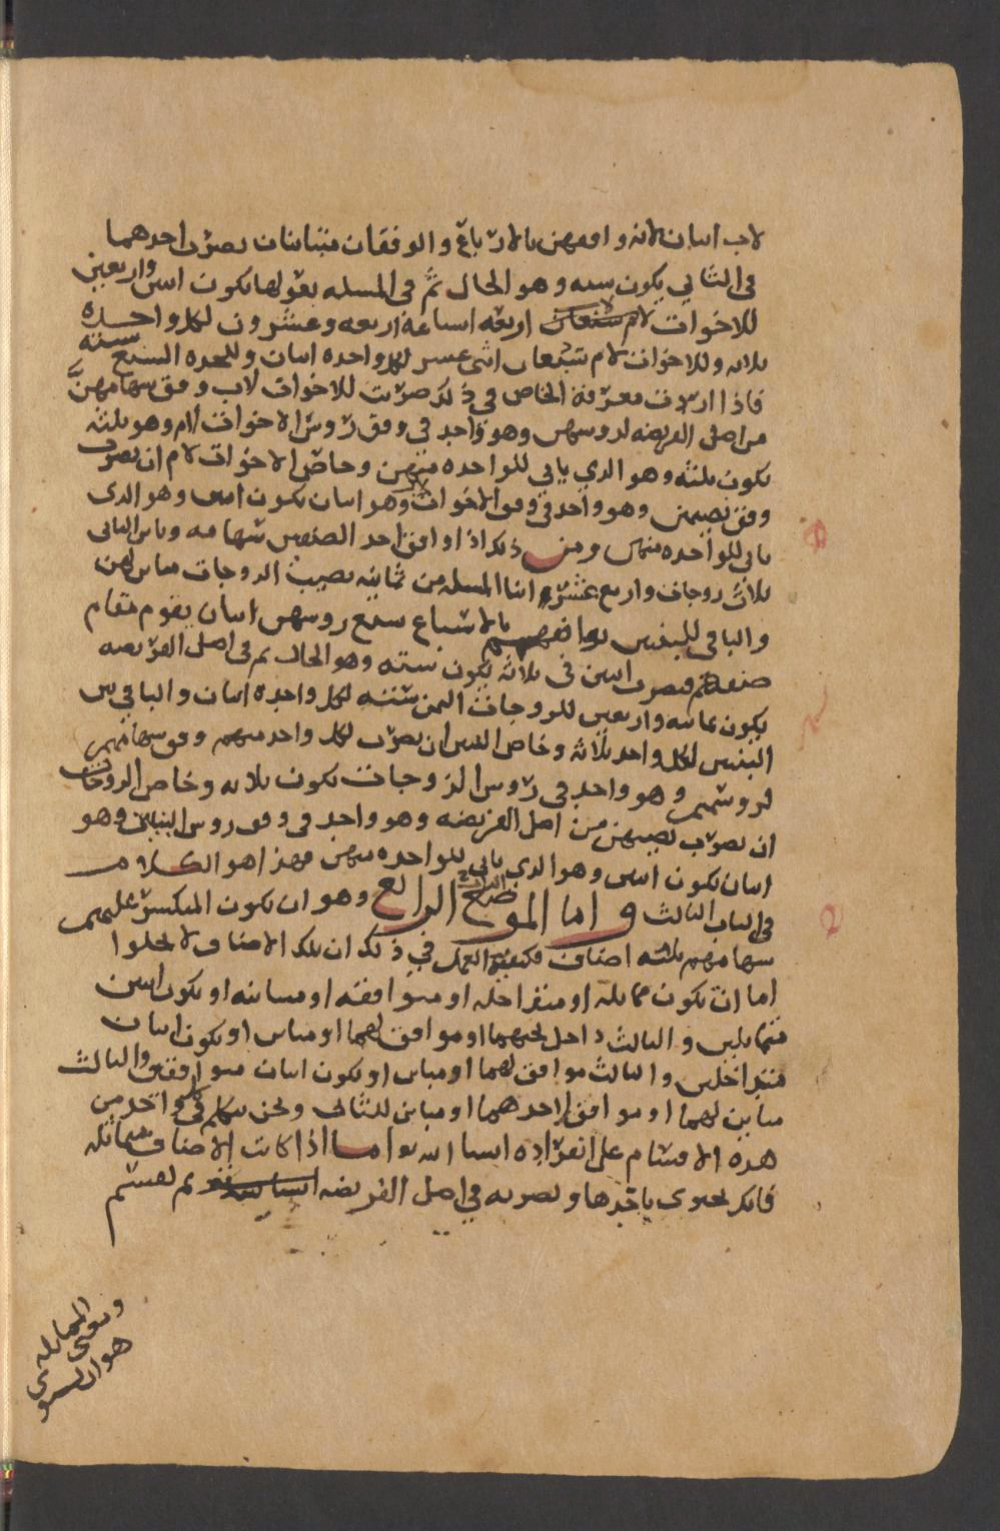 لاب اسان لانه وافقهن بالارباع والوفقان متباينان تضرب احدهما
في الثاني يكون سته وهو الحال ثم في المسله بعولها يكون اسن واربعين
للاخوات لام اربعه اسباعه اربعه وعشرون لكل واحده
ثلاثه وللاخوات لام سبعان اثنى عشر لكل واحده اسان وللجده السبع سته
فاذا اردت معرفة الخاص في ذلك ضربت للاخوات لاب وفق سهامهن
من اصل الفريضه لروسهن وهو واحد في وفق رؤس الاخوات لام وهو ثلثه
يكون ثلثه وهو الذي ياتي للواحده منهن وخاص الاخوات لام ان تضرب
وفق نصيبهن وهو واحد في وفق الاخوات لاب وهو اسان يكون اسن وهو الذي
ياتي للواحده منهن ومن ذلك اذا وافق احد الصنفين سهامه وباين الثاني
ثلاث زوجات واربع عشر المسله من ثمانيه نصيب الزوجات مباين لهن
والباقي للبنتين يوافقهم بالاسباع سبع روسهن اسان يقوم مقام
صنفهم فتضرب اسن في ثلاثه يكون سته وهو الحال ثم في اصل الفريضه
يكون ثمانيه واربعين للزوجات الثمن سته لكل واحده اسان والباقي بين
البنتين لكل واحد ثلاثه وخاص البنتين ان تضرب لكل واحد منهم وفق سهامهم
لروسهم وهو واحد في رؤس الزوجات يكون ثلاثه وخاص الزوجات
ان تضرب نصيبهن من اصل الفريضه وهو واحد في وفق روس البنات وهو
اسان يكون اسن وهو الذي ياتي للواحده منهن فهذا هو الكلام
في الباب الثالث واما الموضع الرابع وهو ان يكون المنكسر عليهم
سهامهم ثلثه اصناف فكيفية العمل في ذلك ان تلك الاصناف لا يخلوا
اما ان يكون مماثله او متداخله او متوافقه او متباينه او يكون اسن
متماثلين والثالث داخل تحتهما او موافق لهما او مباين او يكون اسان
متداخلين والثالث موافق لهما او مباين او يكون اسان متوافقين والثالث
مباين لهما او موافق لاحدهما او مباين للثاني ونحن نتكلم في كل واحد من
هذه الاقسام على انفراده ان شا الله تعالى اما اذا كانت الاصناف متماثله
فانك تجتزي باحدها وتضربه في اصل الفريضه ثم تقسم
ومعنى المماثله
هو ان تستوي